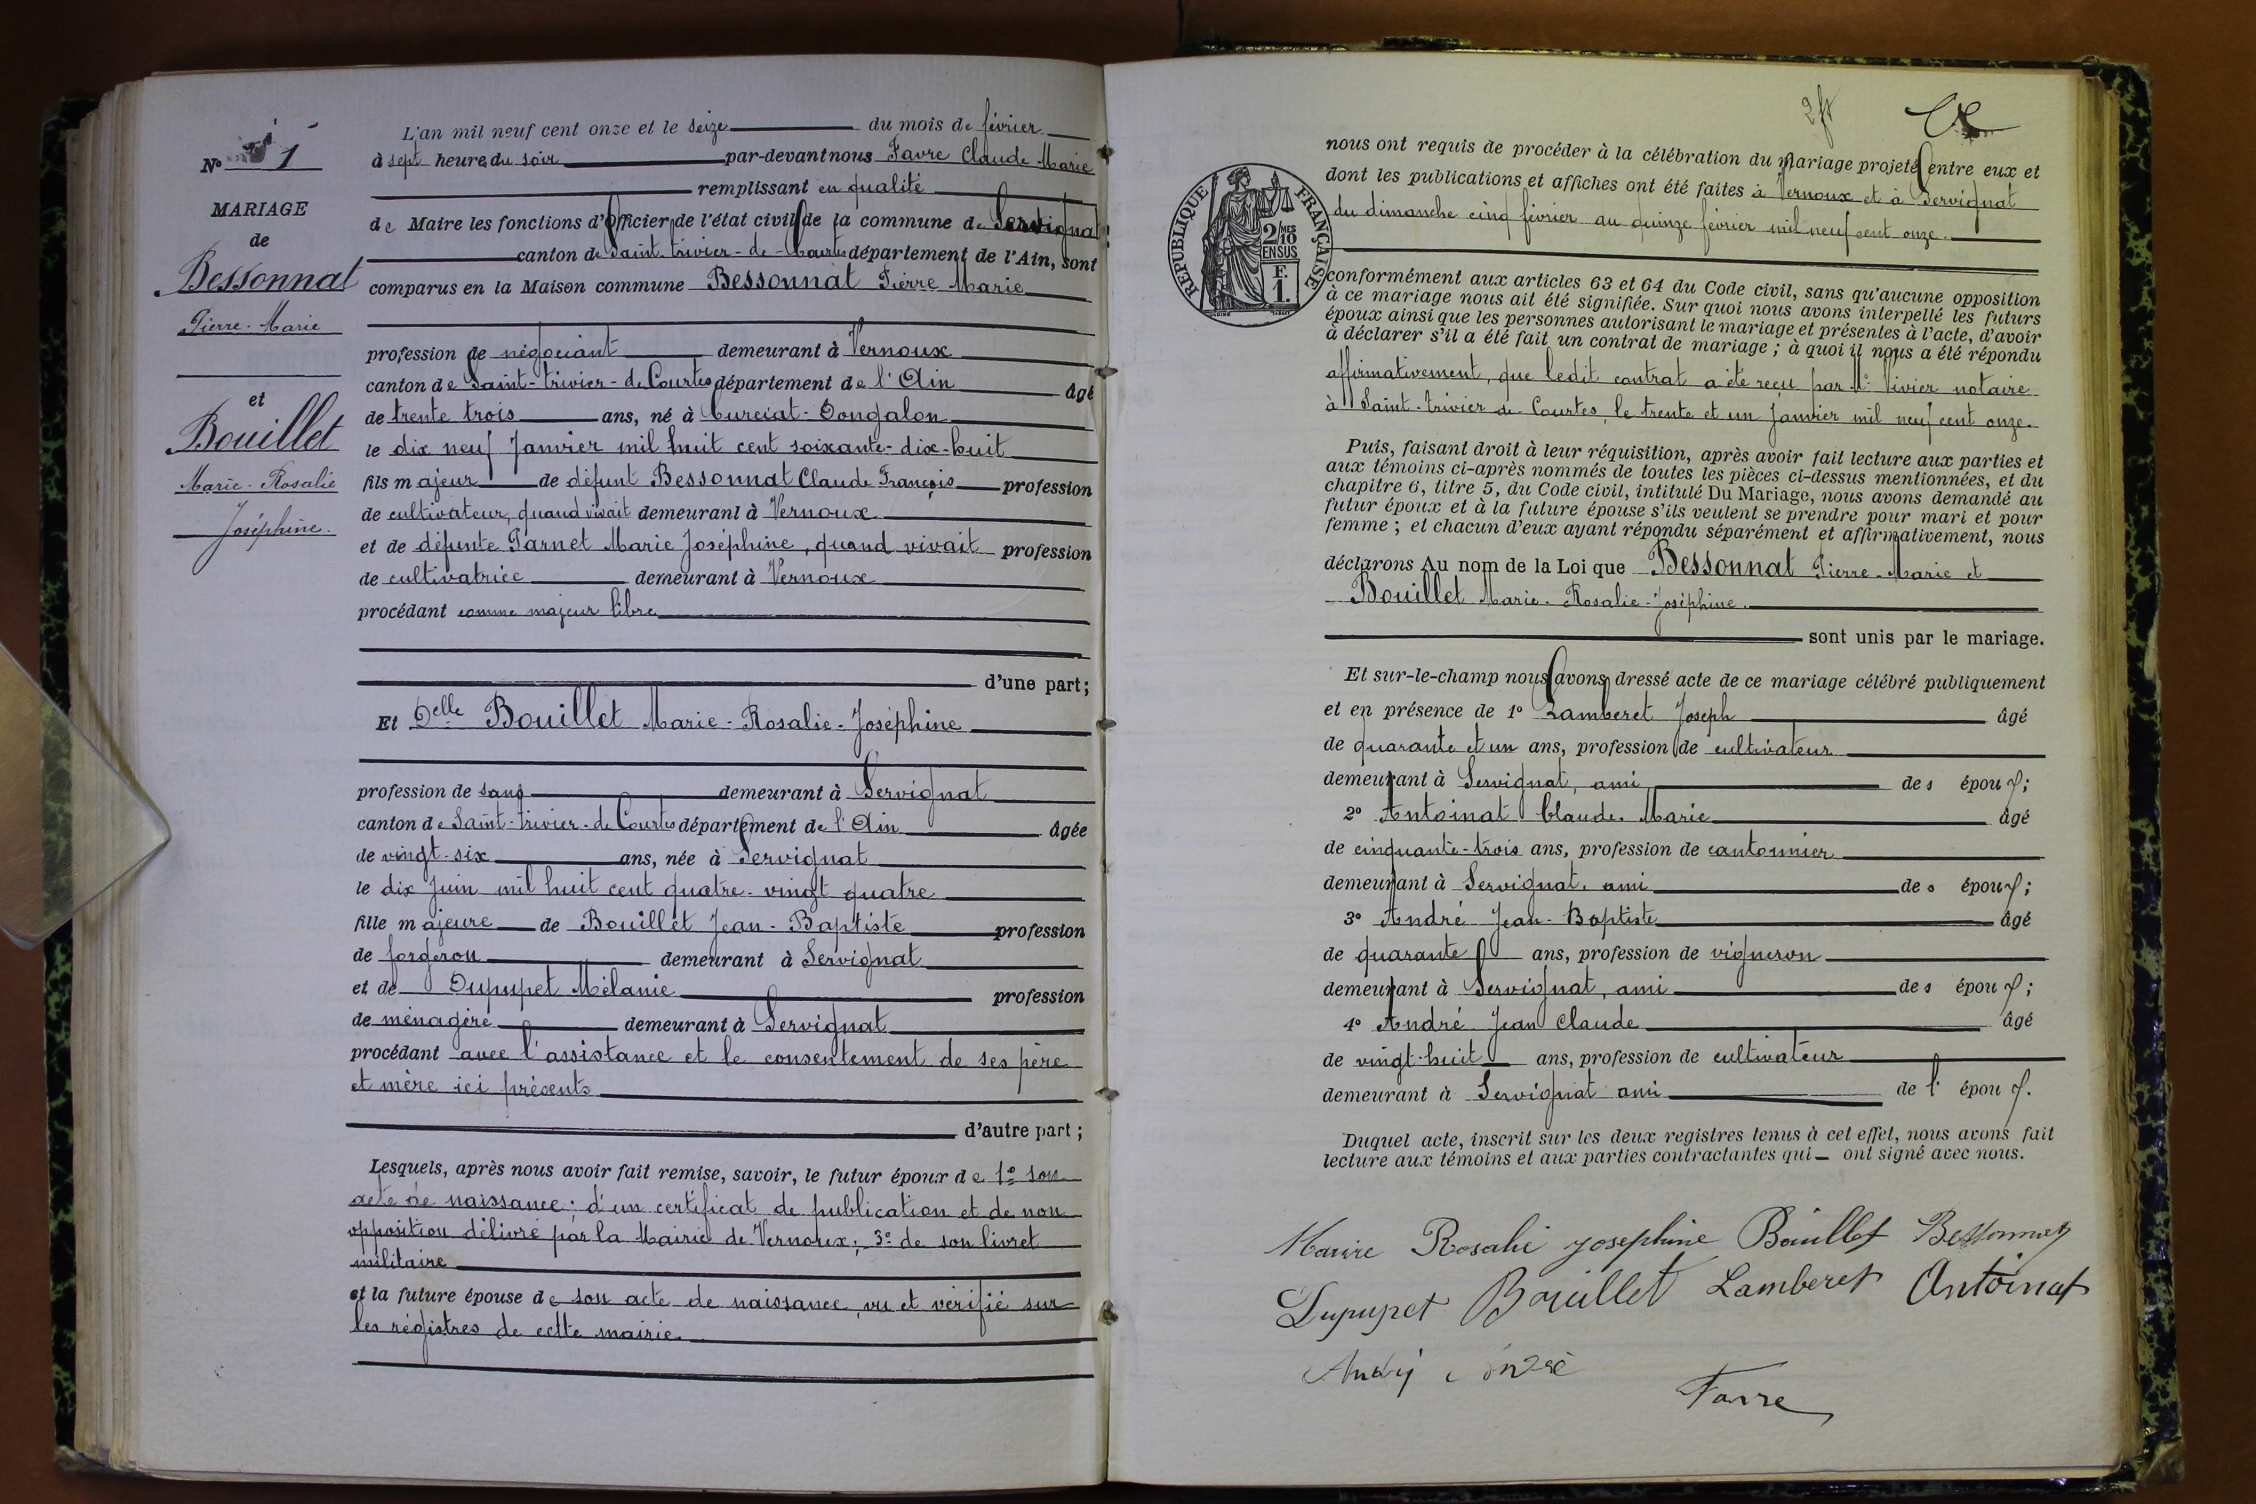 N° 1
MARIAGE
de
Bessonnat
Pierre-Marie
et
Bouillet
Marie-Rosalie
Joséphine.
L'an mil neuf cent onze et le seize du mois de février
à sept heures du soir par-devant nous Favre Claude Marie
remplissant en qualité
de Maire les fonctions d'Officier de l'état civil de la commune de Servignat
canton de Saint-trivier-de-Courtes département de l'Ain, sont
comparus en la Maison commune Bessonnat Pierre Marie
profession de négociant demeurant à Vernoux
canton de Saint-trivier-de Courtes département de l'Ain âgé
de trente trois ans, né à Curciat-Dongalon
le dix neuf Janvier mil huit cent soixante-dix-huit
fils majeur de défunt Bessonnat Claude François profession
de cultivateur, quand vivait demeurant à Vernoux
et de défunte Parnet Marie Joséphine, quand vivait profession
de cultivatrice demeurant à Vernoux
procédant comme majeur libre
d'une part;
Et Delle Bouillet Marie-Rosalie-Joséphine
profession de sans demeurant à Servignat
canton de Saint-trivier-de Courtes département de l'Ain âgée
de vingt-six ans, née à Servignat
le dix Juin mil huit cent quatre-vingt quatre
fille majeure de Bouillet Jean-Baptiste profession
de forgeron demeurant à Servignat
et de Dupupet Mélanie profession
de ménagère demeurant à Servignat
procédant avec l'assistance et le consentement de ses père
et mère ici présents
d'autre part;
Lesquels, après nous avoir fait remise, savoir, le futur époux de 1° son
acte de naissance; d'un certificat de publication et de non
opposition délivré par la Mairie de Vernoux; 3° de son livret
militaire
et la future épouse de son acte de naissance, vu et vérifié sur
les régistres de cette mairie.
2 ft
RÉPUBLIQUE FRANÇAISE
2/10 MES
EN SUS
F.
1.
nous ont requis de procéder à la célébration du mariage projeté entre eux et
dont les publications et affiches ont été faites à Vernoux et à Servignat
du dimanche cinq février au quinze février mil neuf cent onze.
conformément aux articles 63 et 64 du Code civil, sans qu'aucune opposition
à ce mariage nous ait été signifiée. Sur quoi nous avons interpellé les futurs
époux ainsi que les personnes autorisant le mariage et présentes à l'acte, d'avoir
à déclarer s'il a été fait un contrat de mariage; à quoi il nous a été répondu
affirmativement, que ledit contrat a été reçu par Me Vivier notaire
à Saint-trivier de Courtes, le trente et un Janvier mil neuf cent onze.
Puis, faisant droit à leur réquisition, après avoir fait lecture aux parties et
aux témoins ci-après nommés de toutes les pièces ci-dessus mentionnées, et du
chapitre 6, titre 5, du Code civil, intitulé Du Mariage, nous avons demandé au
futur époux et à la future épouse s'ils veulent se prendre pour mari et pour
femme; et chacun d'eux ayant répondu séparément et affirmativement, nous
déclarons Au nom de la Loi que Bessonnat Pierre-Marie et
Bouillet Marie-Rosalie-Joséphine.
sont unis par le mariage.
Et sur-le-champ nous avons dressé acte de ce mariage célébré publiquement
et en présence de 1° Lamberet Joseph âgé
de quarante et un ans, profession de cultivateur
demeurant à Servignat, ami des époux;
2° Antoinat Claude Marie âgé
de cinquante-trois ans, profession de cantonnier
demeurant à Servignat, ami des époux;
3° André Jean-Baptiste âgé
de quarante ans, profession de vigneron
demeurant à Servignat, ami des époux;
4° André Jean Claude âgé
de vingt-huit ans, profession de cultivateur
demeurant à Servignat ami de l' époux.
Duquel acte, inscrit sur les deux registres tenus à cet effet, nous avons fait
lecture aux témoins et aux parties contractantes qui ont signé avec nous.
Marire Rosalie josephine Bouillet Bessonnat
Dupupet Bouillet Lamberet Antoinat
André
Favre